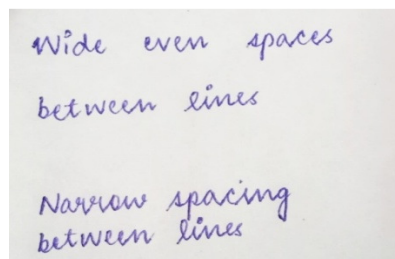 Wide even spaces
between lines
Narrow spacing
between lines